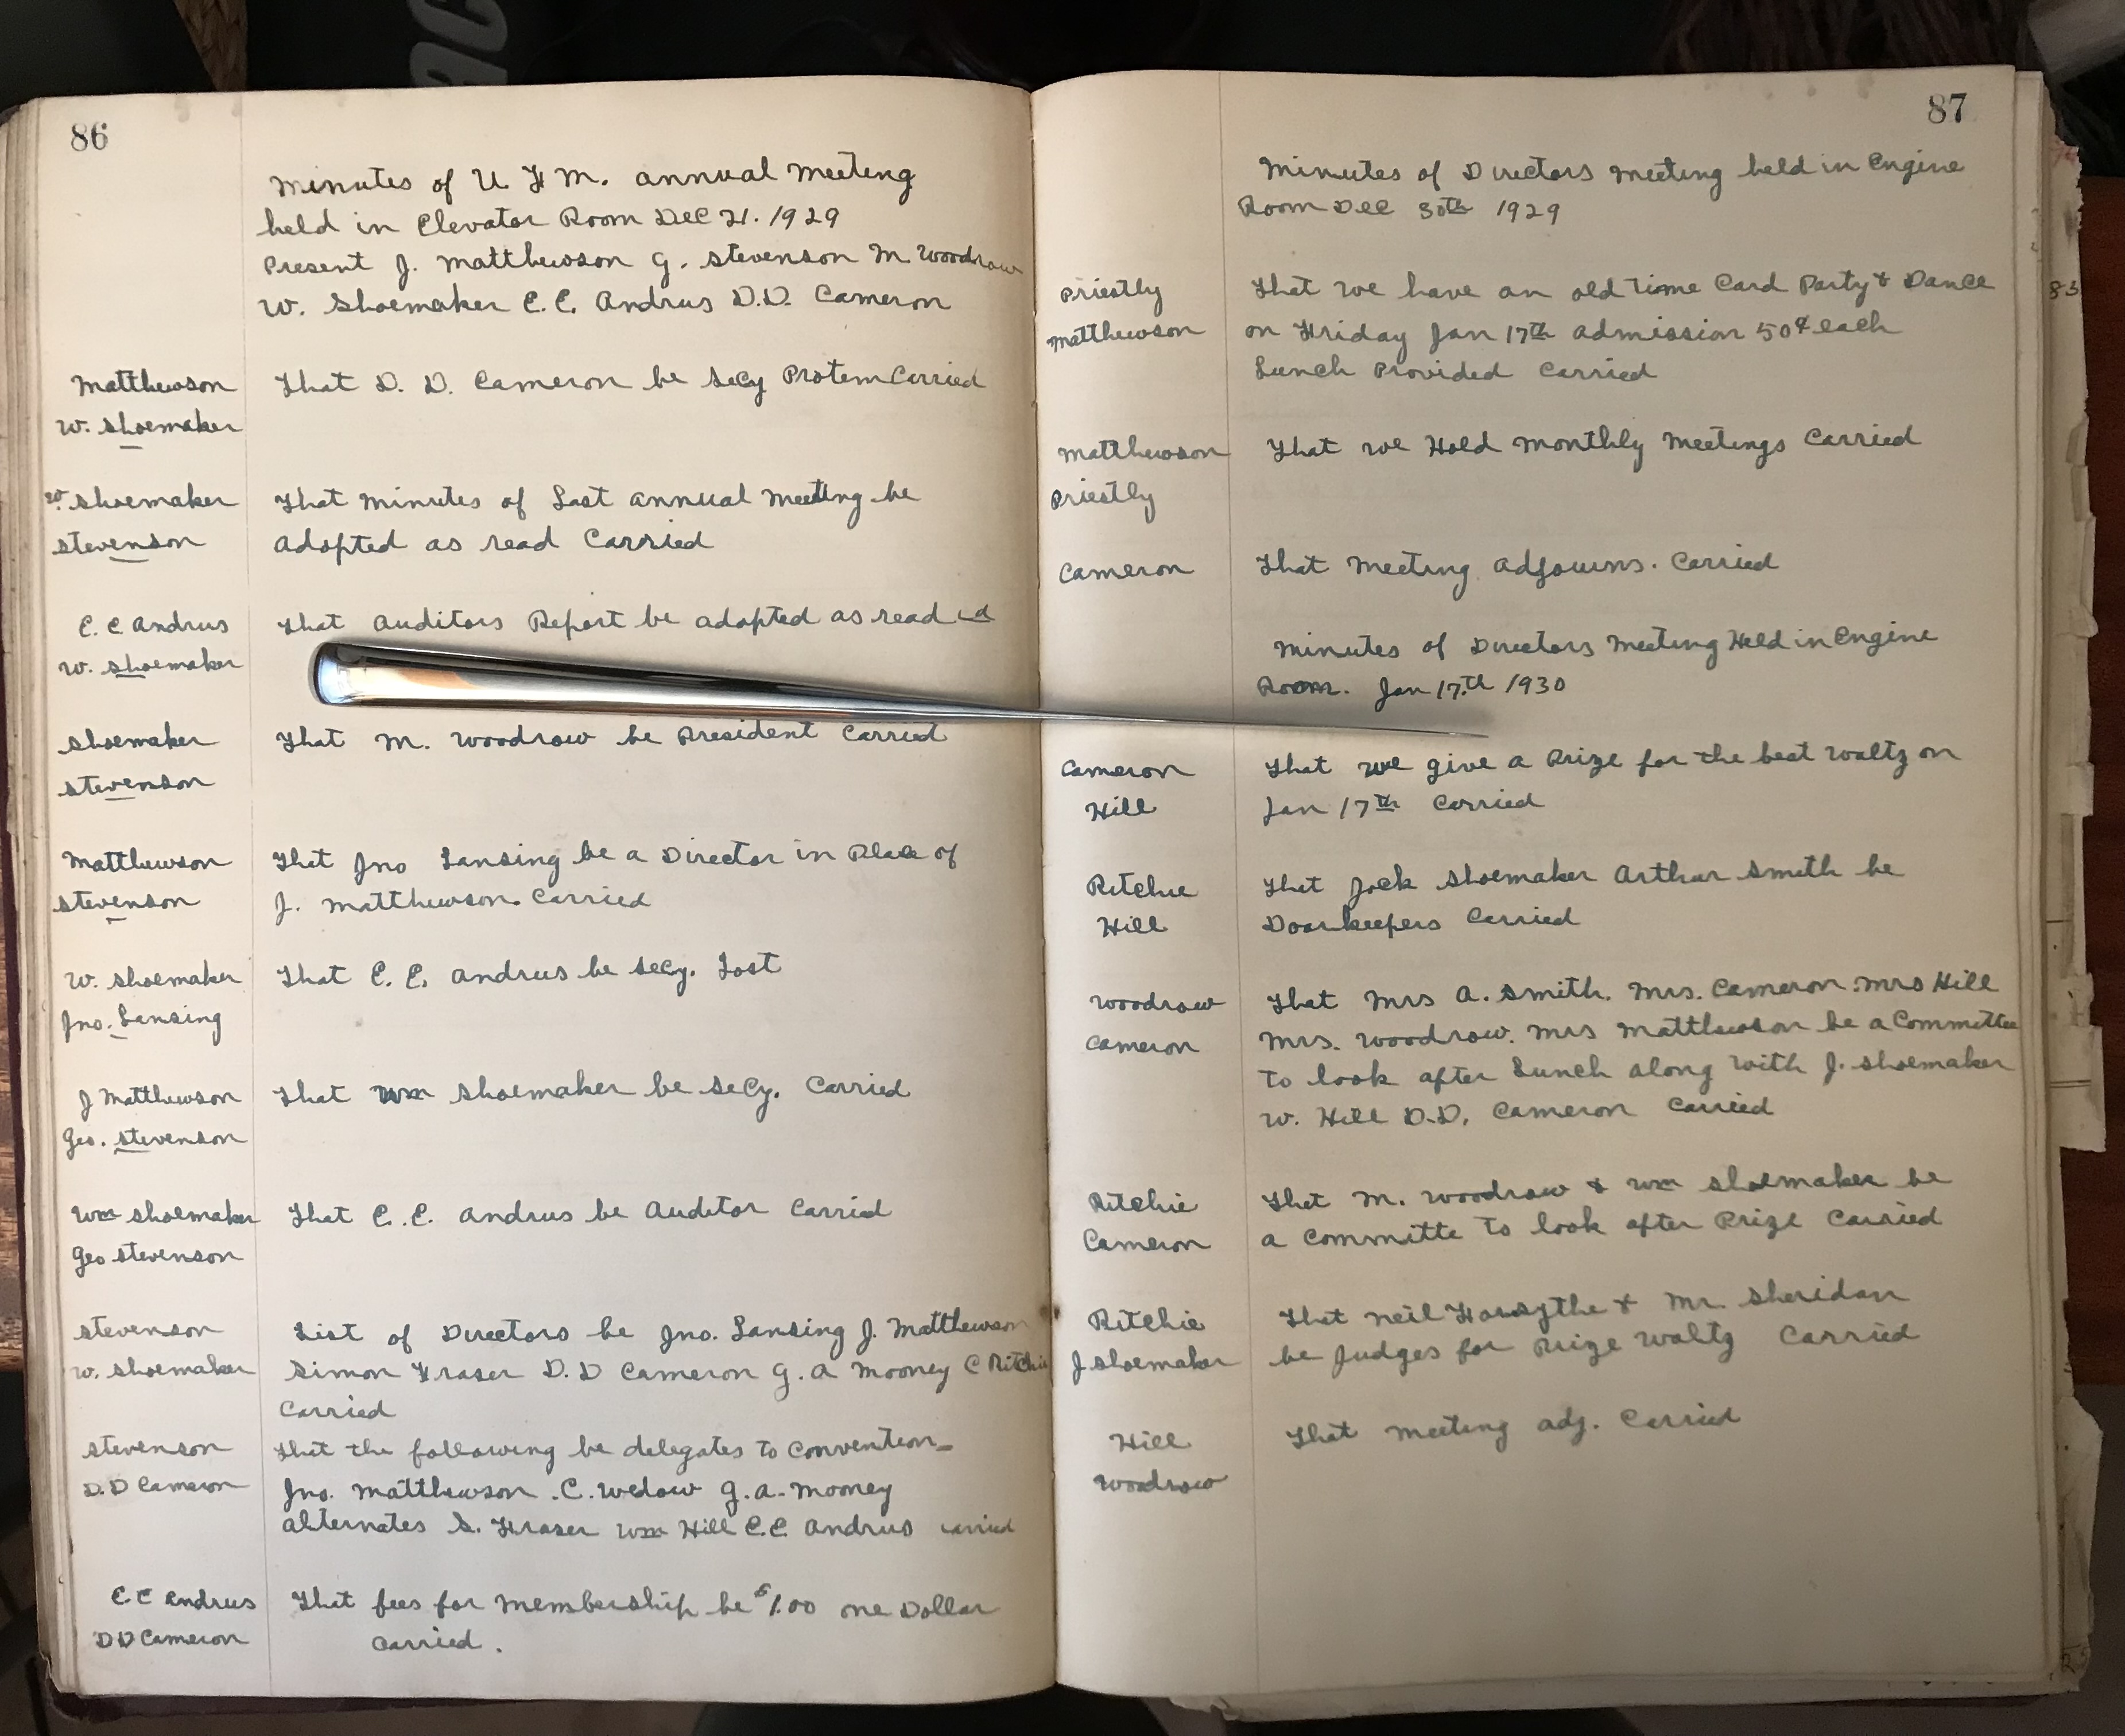 86
Minutes of U F M. annual meeting
held in Elevator Room Dec 21. 1929
Present J. Matthewson G. Stevenson M Woodrow
W. Shoemaker E. E. Andrus D.D. Cameron
Matthewson That D. D. Cameron be Secy Protem Carried
W. Shoemaker
W. Shoemaker That minutes of Last annual meeting be
Stevenson adopted as read Carried
E. E Andrus That Auditors Report be adopted as read
W. Shoemaker
Shoemaker That M. Woodrow be President Carried
Stevenson
Matthewson That Jno Lansing be a Director in Place of
Stevenson J. Matthewson. Carried
W. Shoemaker That E. E. Andrus be Secy. Lost
Jno. Lansing
J Matthewson That Wm Shoemaker be Secy. Carried
Geo. Stevenson
Wm Shoemaker That E. E. Andrus be Auditor Carrid
Geo Stevenson
Stevenson List of Directors be Jno. Lansing J. Matthewson
W. Shoemaker Simon Fraser D.D Cameron G. A Mooney C Ritchie
Carried
Stevenson That the following be delegates to Convention
D.D Cameron Jno. Matthewson. C. Wedow G. A. Mooney
alternates S. Fraser Wm Hill E.E Andrus carried
E E Andrus That fees for membership be $1.00 one Dollar
D D Cameron Carried.
87
Minutes of Directors meeting held in Engine
Room Dec 30th 1929
Priestly That we have an old Time Card Party & Dance
Matthewson on Friday Jan 17th admission 50¢ each
Lunch Provided Carried
Matthewson That we Hold monthly meetings Carried
Priestly
Cameron That meeting adjourns. Carried
Minutes of Directors meeting Held in Engine
Room. Jan 17.th 1930
Cameron That we give a Prize for the best waltz on
Hill Jan 17th Carried
Ritchie That Jack Shoemaker Arthur Smith be
Hill Doorkeepers Carried
Woodrow That Mrs A. Smith. Mrs. Cameron. Mrs Hill
Cameron Mrs. Woodrow. Mrs Matthewson be a Committee
to look after Lunch along with J. Shoemaker
W. Hill D.D. Cameron Carried
Ritchie That M. Woodrow & Wm Shoemaker be
Cameron a Committe to look after Prize Carried
Ritchie That Neil Forsythe & Mr. Sheridan
J. Shoemaker be Judges for Prize Waltz Carried
Hill That meeting adj. Carried
Woodrow
83